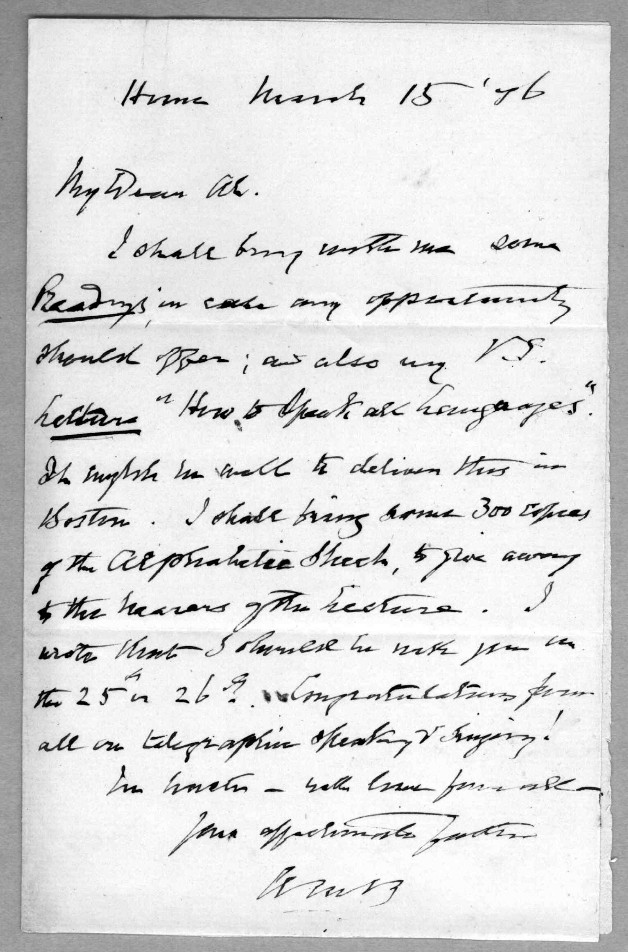 Home March 15 '76
My Dear Al.
I shall bring with me some
Readings, in case any opportunity
should offer; as also my V.S.
Lecture "How to Speak all Languages".
It might be well to deliver this in
Boston. I shall bring some 300 copies
of the Alphabetic Sheet, to give away
to the hearers of the Lecture. I
wrote that I should be with you on
the 25th or 26th. Congratulations from
all on telegraphic speaking & singing!
In haste – with love from all –
Your affectionate father
AMB